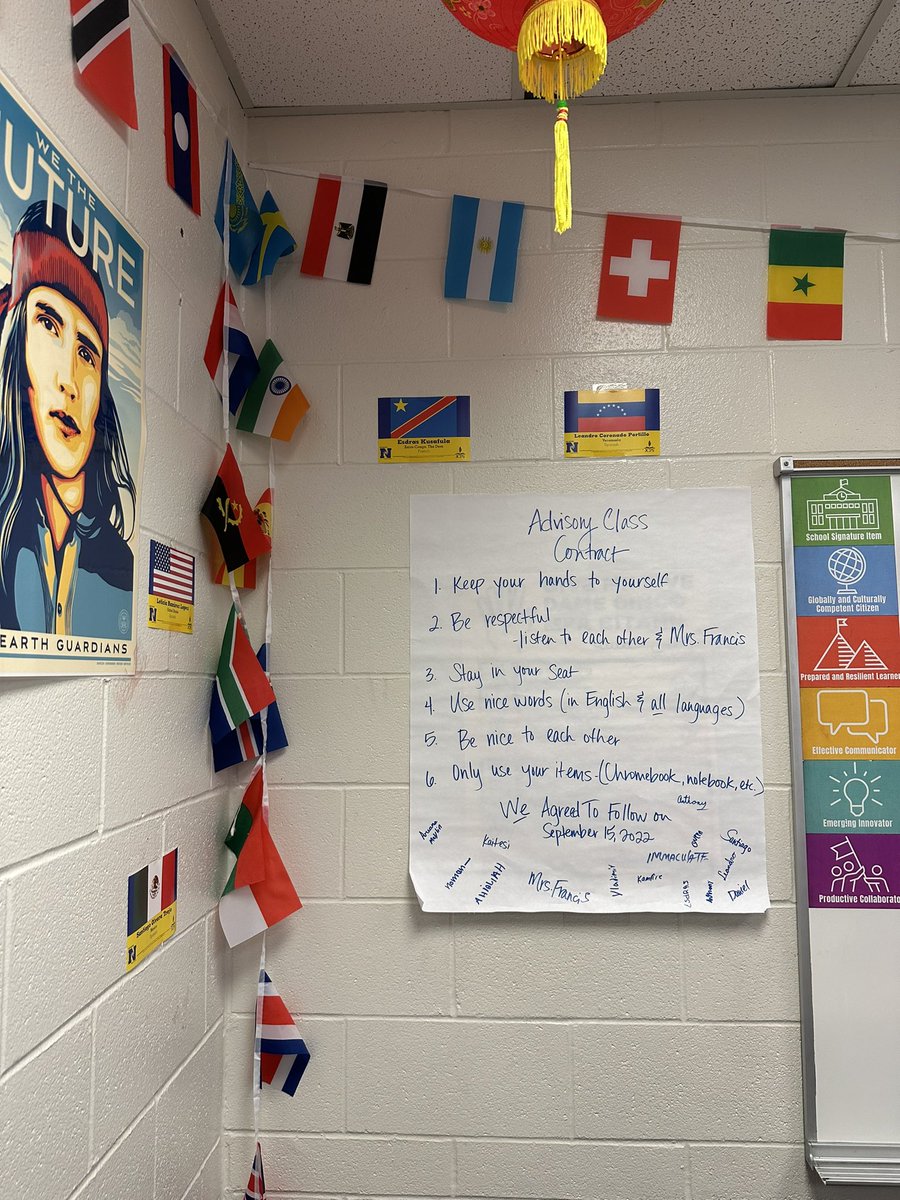 WE THE
FUTURE
EARTH GUARDIANS
Esdras Kasafula
Leandro Coronado Portillo
Venezuela
Advisory Class
Contract
1. Keep your hands to yourself
2. Be respectful
-listen to each other & Mrs. Francis
3. Stay in your Seat
4. Use nice words (in English & all languages)
5. Be nice to each other
6. Only use your items-(Chromebook, notebook, etc.)
We Agreed To Follow on
September 15, 2022
Anthony
Kaitesi
IMMACULATE
Santiago
Leandro
Mrs. Francis
Vladimir
Daniel
School Signature Item
Globally and Culturally
Competent Citizen
Prepared and Resilient Learner
Effective Communicator
Emerging Innovator
Productive Collaborato